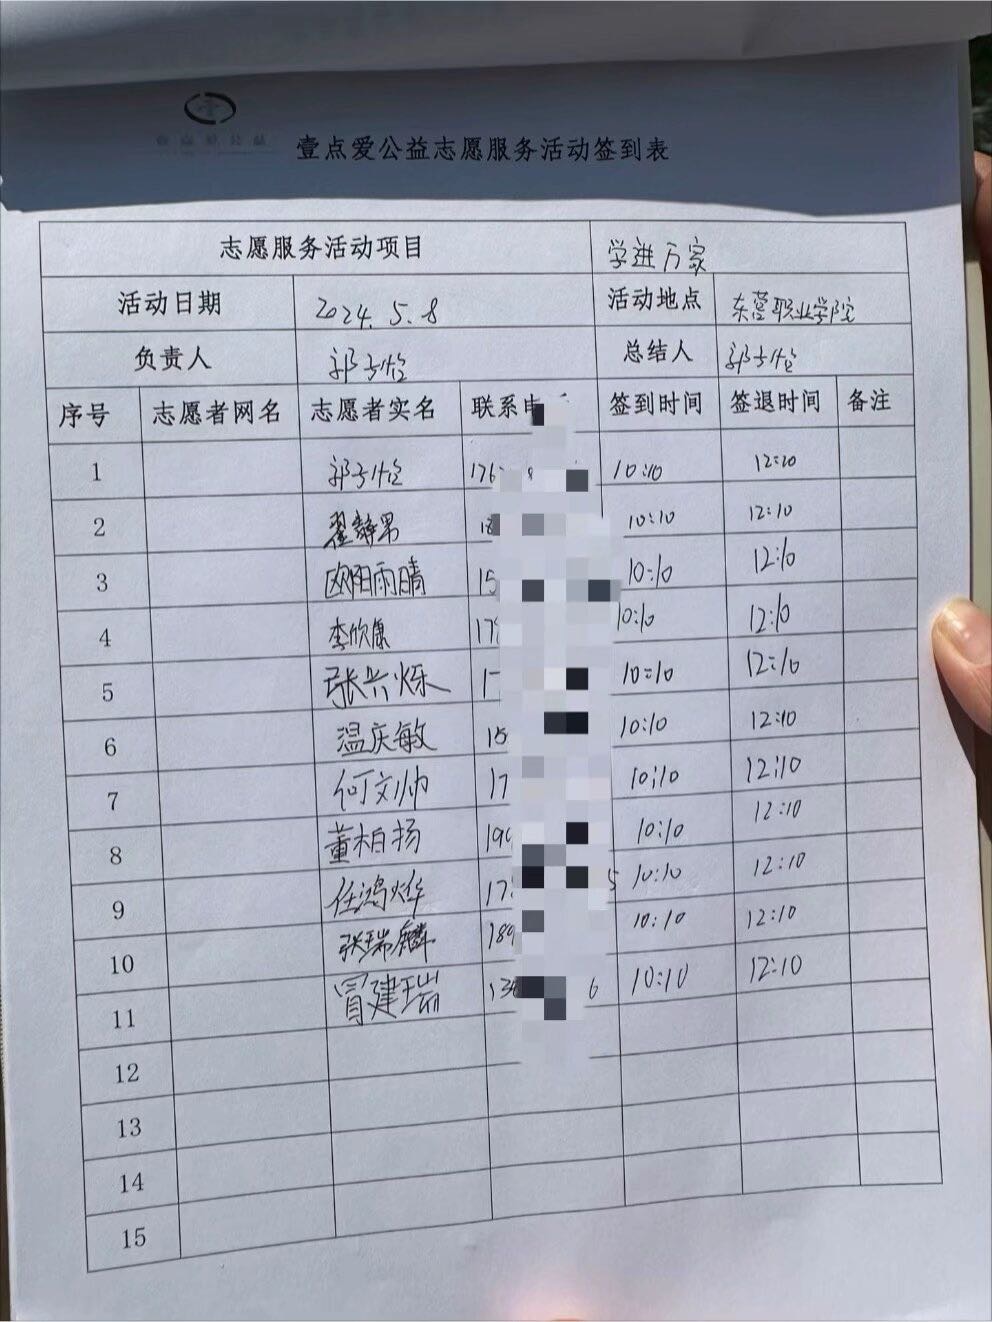 壹点爱公益
壹点爱公益志愿服务活动签到表
志愿服务活动项目 学进万家
活动日期 2024.5.8 活动地点 东营职业学院
负责人 郭子怡 总结人 郭子怡
序号 志愿者网名 志愿者实名 联系电 签到时间 签退时间 备注
1 郭子怡 176 10:10 12:20
2 翟静男 18 10:10 12:10
3 欧阳雨晴 15 10:10 12:10
4 李欣康 17 10:10 12:10
5 张兴烁 1 10:10 12:10
6 温庆敏 15 10:10 12:10
7 何文帅 17 10:10 12:10
8 董柏扬 199 10:10 12:10
9 任鸿烨 17 5 10:10 12:10
10 张瑞麟 189 10:10 12:10
11 冒建瑞 13 6 10:10 12:10
12
13
14
15